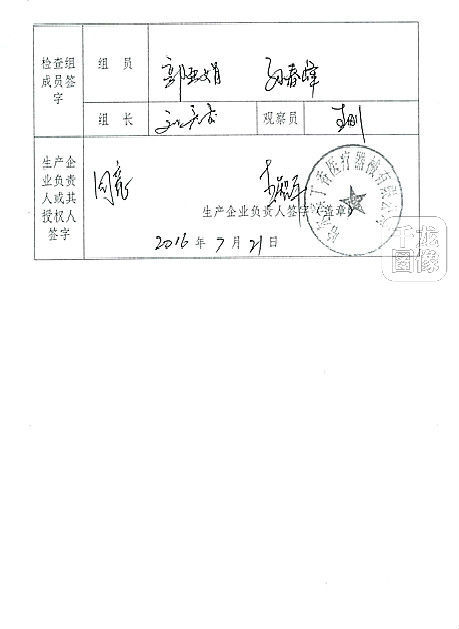 检查组成员签字
组 员
郭亚娟 孙春峰
组 长
观察员
生产企业负责人或其授权人签字
同意
生产企业负责人签字（盖章）
2016 年 7 月 21 日
医疗器械有限公司
千龙图像